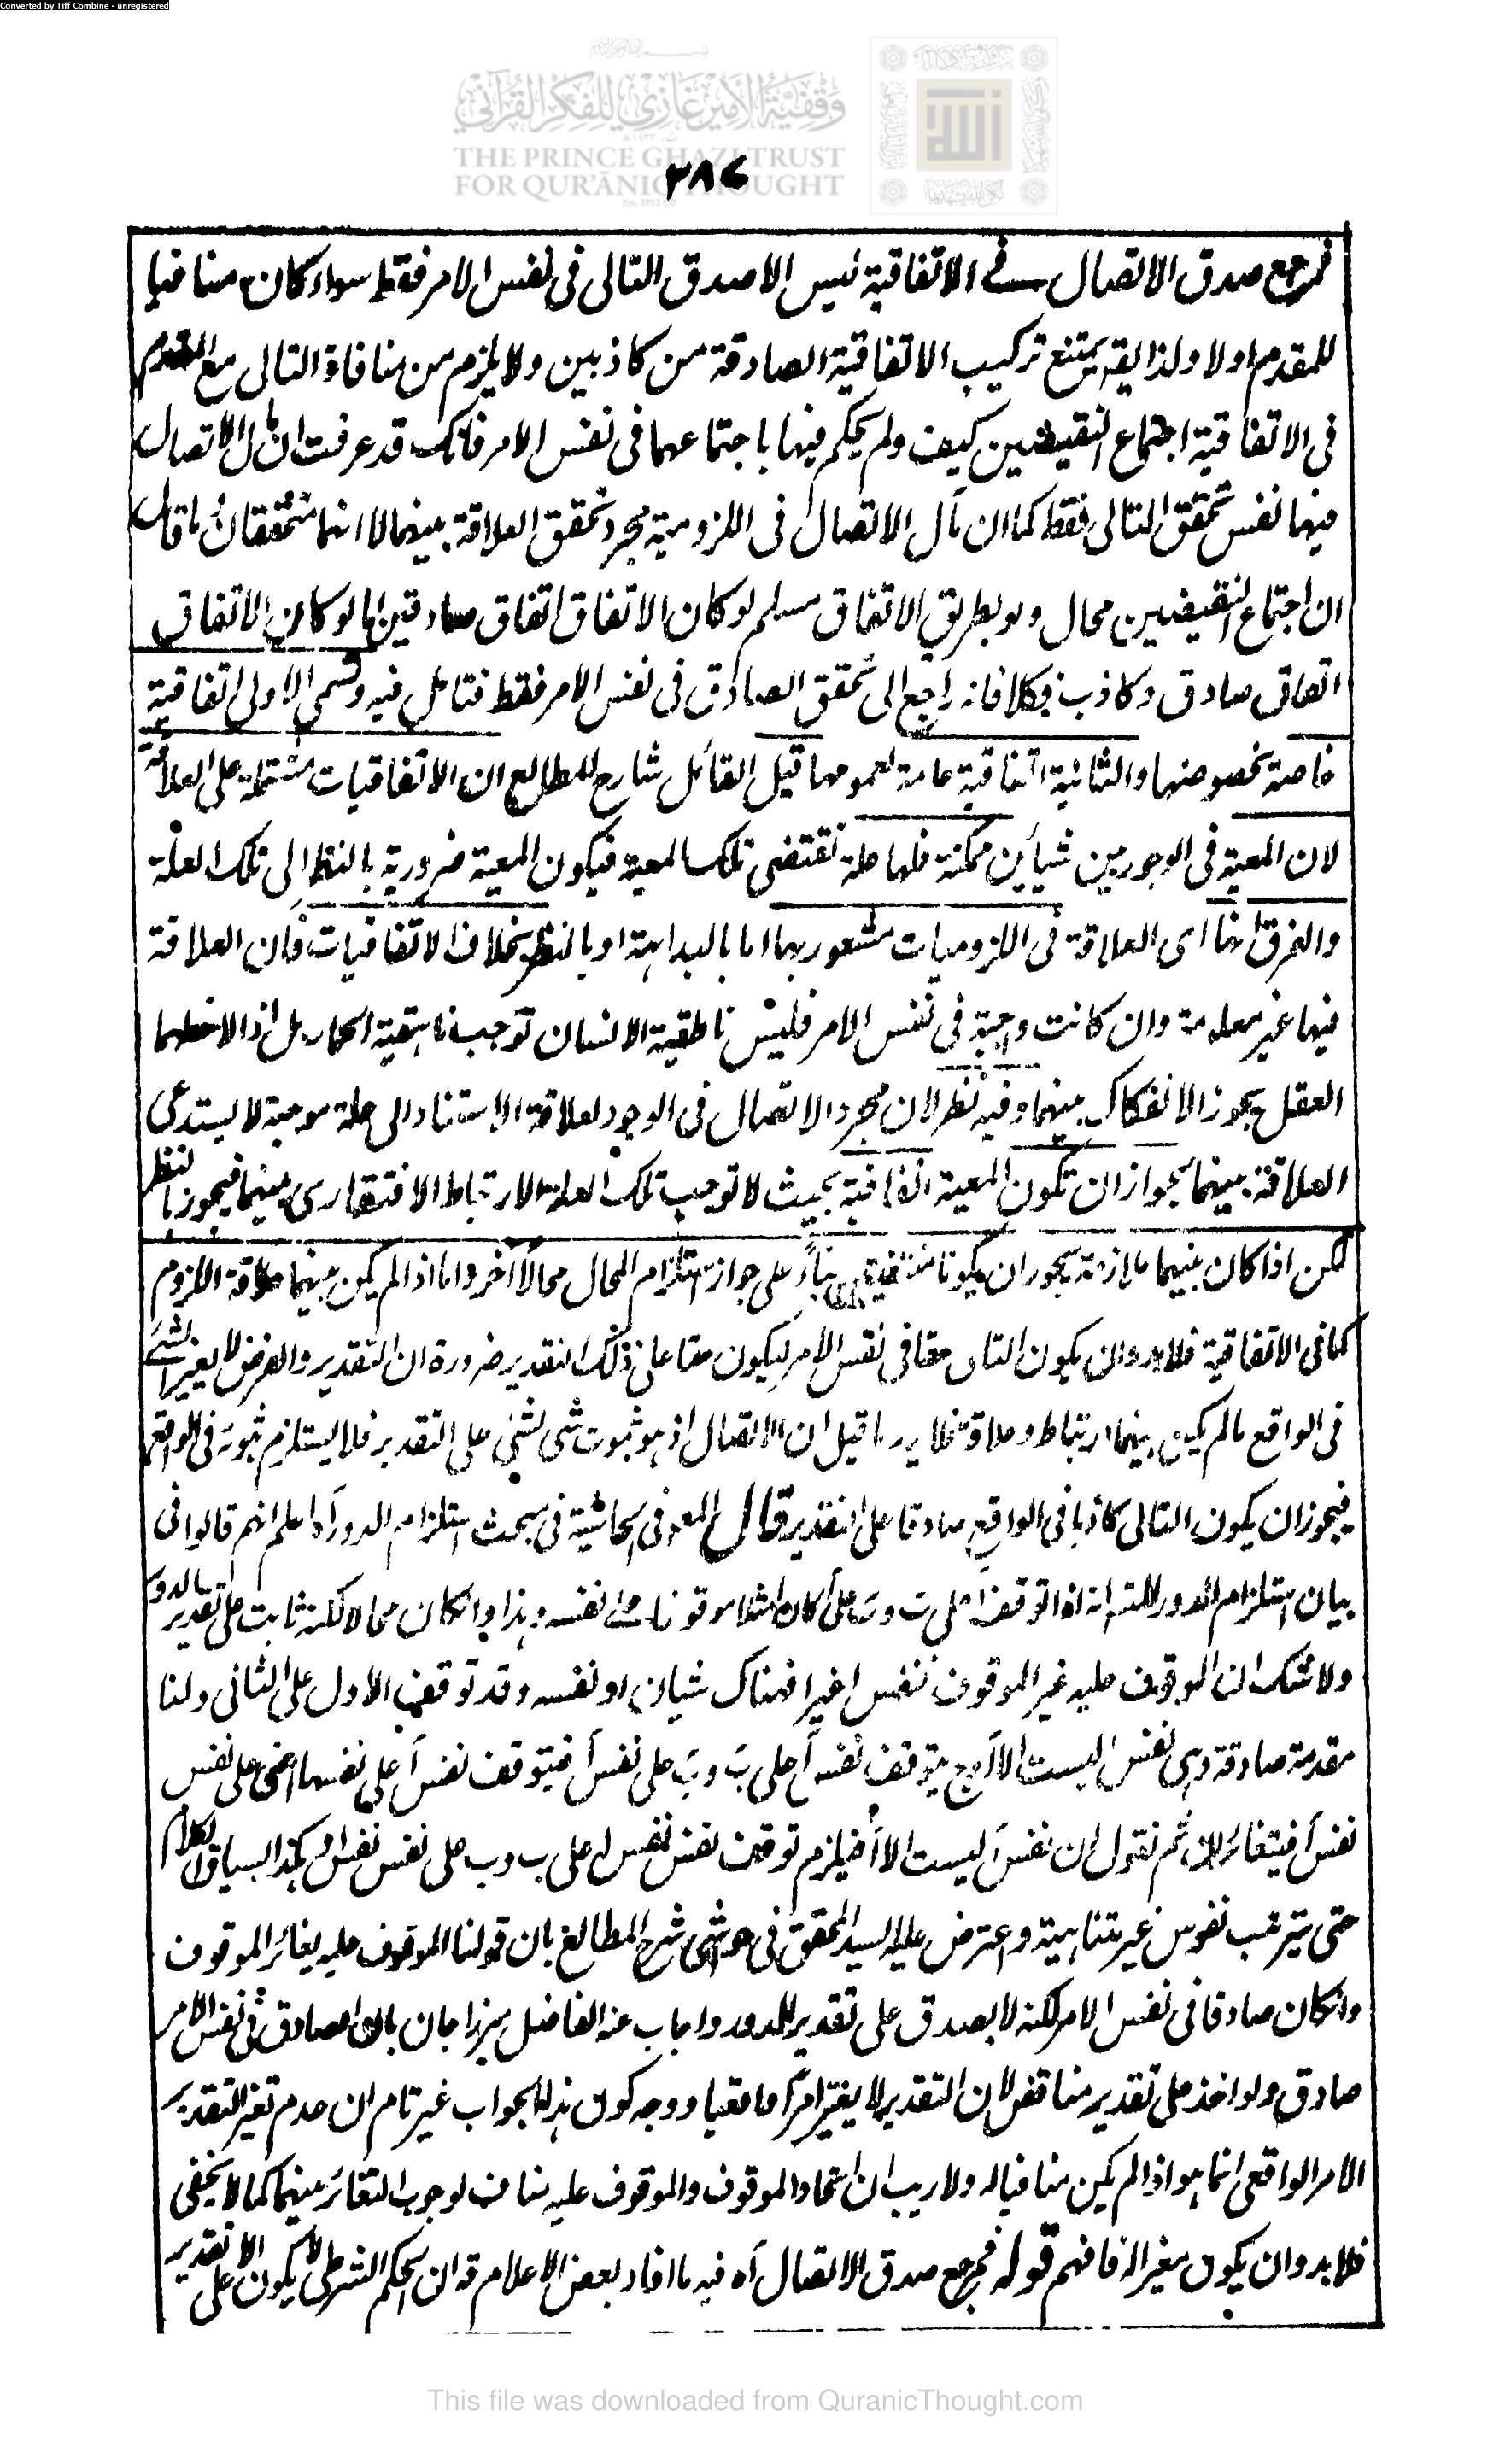 Converted by Tiff Combine - unregistered
وقفية الأمير غازي للفكر القرآني
THE PRINCE GHAZI TRUST
FOR QUR'ĀNIC THOUGHT
٣٨٧
فمرجع صدق الاتصال في الاتفاقية ليس الا صدق التالى فى نفس الامر فقط سواء كان منافيا
للمقدم او لا ولذا يقر يمتنع تركيب الاتفاقية الصادقة من كاذبين ولا يلزم من منافاة التالى مع المقدم
فى الاتفاقية اجتماع النقيضين كيف ولم يحكم فيها باجتماعهما فى نفس الامر فانك قد عرفت ان مآل الاتصال
فيها نفس تحقق التالى فقط كما ان مآل الاتصال فى اللزومية مجرد تحقق العلاقة بينهما لا انهما متحققان ما قال
ان اجتماع النقيضين محال ولو بطريق الاتفاق مسلم لو كان الاتفاق اتفاق صادقين اما لو كان الاتفاق
اتفاق صادق وكاذب فكلا فانه راجع الى تحقق الصادق فى نفس الامر فقط فتامل فيه وتسمى الاولى اتفاقية
خاصة بخصوصها والثانية اتفاقية عامة لعمومها قيل القائل شارح المطالع ان الاتفاقيات مشتملة على العلاقة
لان المعية فى الوجود بين شيأين ممكنة فلها علة تقتضى تلك المعية فيكون المعية ضرورية بالنظر الى تلك العلة
والفرق انها اى العلاقة فى اللزوميات مشعور بها اما بالبداهة او بالنظر بخلاف الاتفاقيات فان العلاقة
فيها غير معلومة وان كانت واجبة فى نفس الامر فليس ناطقية الانسان توجب ناهقية الحمار بل اذا لاحظهما
العقل يجوز الانفكاك بينهما وفيه نظر لان مجرد الاتصال فى الوجود لعلاقة الاستناد الى علة موجبة لا يستدعى
العلاقة بينهما لجواز ان تكون المعية اتفاقية بحيث لا توجب تلك العلة الارتباط الافتقارى بينهما فيجوز بالنظر
لكن اذا كان بينهما ملازمة يجوز ان يكونا منتفيين بناءً على جواز استلزام المحال محالاً آخر واما اذا لم يكن بينهما علاقة اللزوم
كما فى الاتفاقية فلابد وان يكون التالى حقا فى نفس الامر ليكون حقا على ذلك التقدير ضرورة ان التقدير والفرض لا يغير الشئ
فى الواقع ما لم يكن بينهما ارتباط وعلاقة فلا يرد ما قيل ان الاتصال اذ هو ثبوت شى لشئ على التقدير فلا يستلزم ثبوته فى الواقع
فيجوز ان يكون التالى كاذبا فى الواقع صادقا على التقدير قال المص فى الحاشية فى مبحث استلزام الدور آه اعلم انهم قالوا فى
بيان استلزام الدور للتس انه اذا توقف ا على ب وب على ا كان ا مثلا موقوفا على نفسه وهذا وان كان محالا لكنه ثابت على تقدير الدور
ولا شك ان الموقوف عليه غير الموقوف فنفس ا غير ا فهناك شيان ا ونفسه وقد توقف الاول على الثانى ولنا
مقدمة صادقة وهى نفس ا ليست الا ا وح يتوقف نفس ا على ب وب على نفس ا فيتوقف نفس ا على نفسها اعنى على نفس
نفس ا فيتغائران ثم نقول ان نفس ا ليست الا ا فيلزم توقف نفس نفس ا على ب وب على نفس نفس ا وهكذا السياق الكلام
حتى يترتب نفوس غير متناهية واعترض عليه السيد المحقق فى حواشى شرح المطالع بان قولنا الموقوف عليه يغائر الموقوف
وان كان صادقا فى نفس الامر لكنه لا يصدق على تقدير الدور واجاب عنه الفاضل ميرزاجان بان الصادق فى نفس الامر
صادق ولو اخذ على تقدير مناقض لان التقدير لا يغير امرا واقعيا ووجه كون هذا الجواب غير تام ان عدم تغير التقدير
الامر الواقعى انما هو اذا لم يكن منافيا له ولا ريب ان اتحاد الموقوف والموقوف عليه مناف لوجوب التغائر بينهما كما لا يخفى
فلابد وان يكون مغيرا له فافهم قوله فمرجع صدق الاتصال آه فيه ما افاد بعض الاعلام قه ان الحكم الشرطى لا يكون الا على تقدير
This file was downloaded from QuranicThought.com